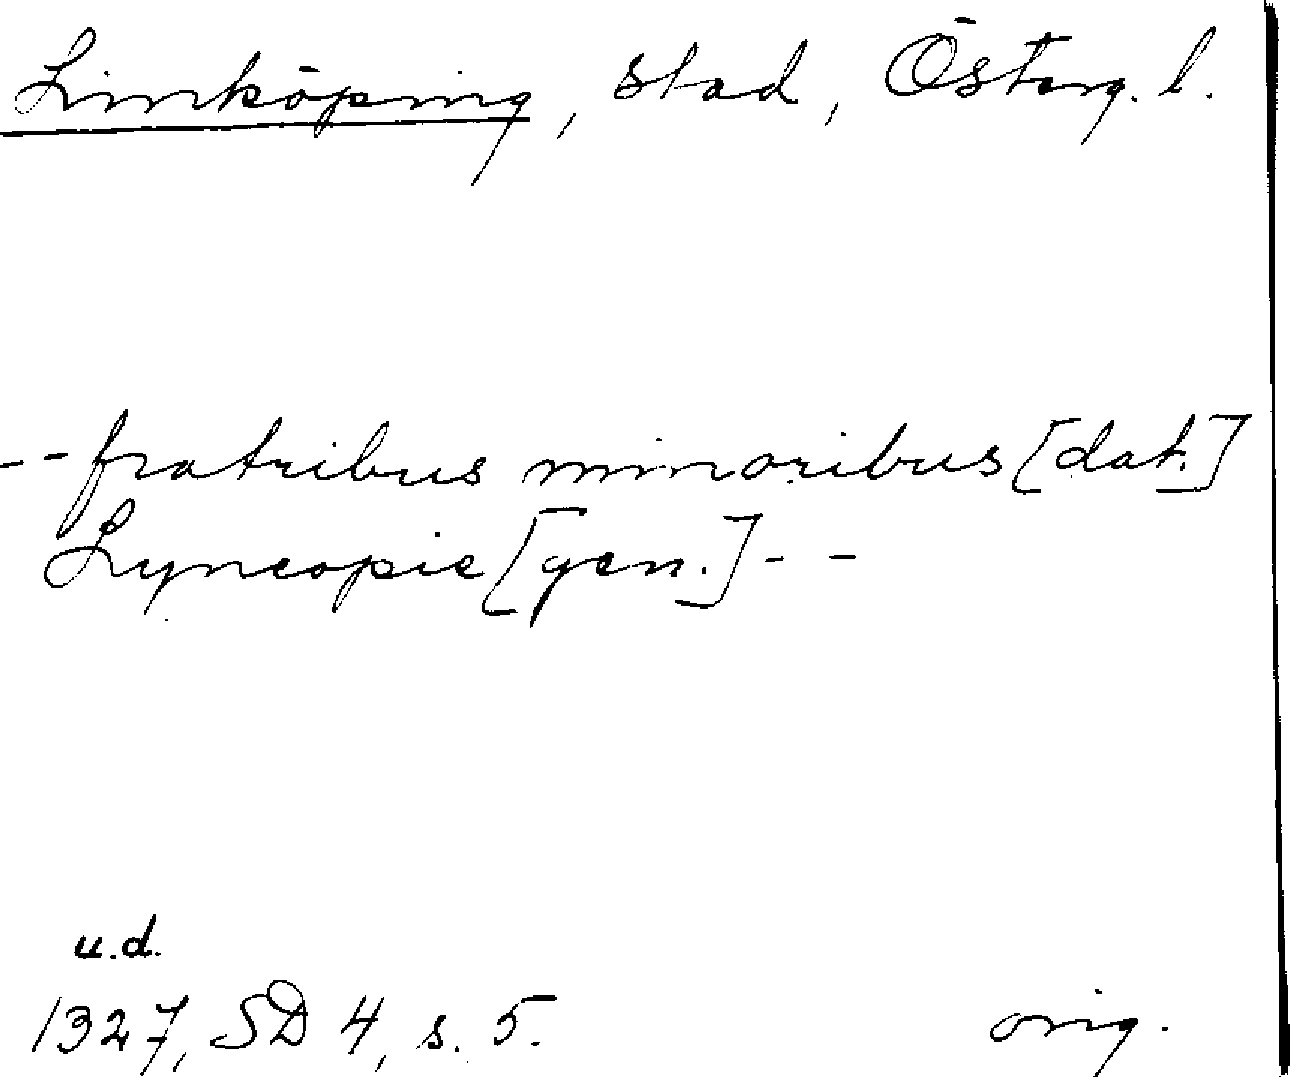 Linköping, stad, Österg. l.
-- fratribus minoribus [dat.]
Lyncopie [gen.] - -
u.d.
1327, SD 4, s. 5. orig.